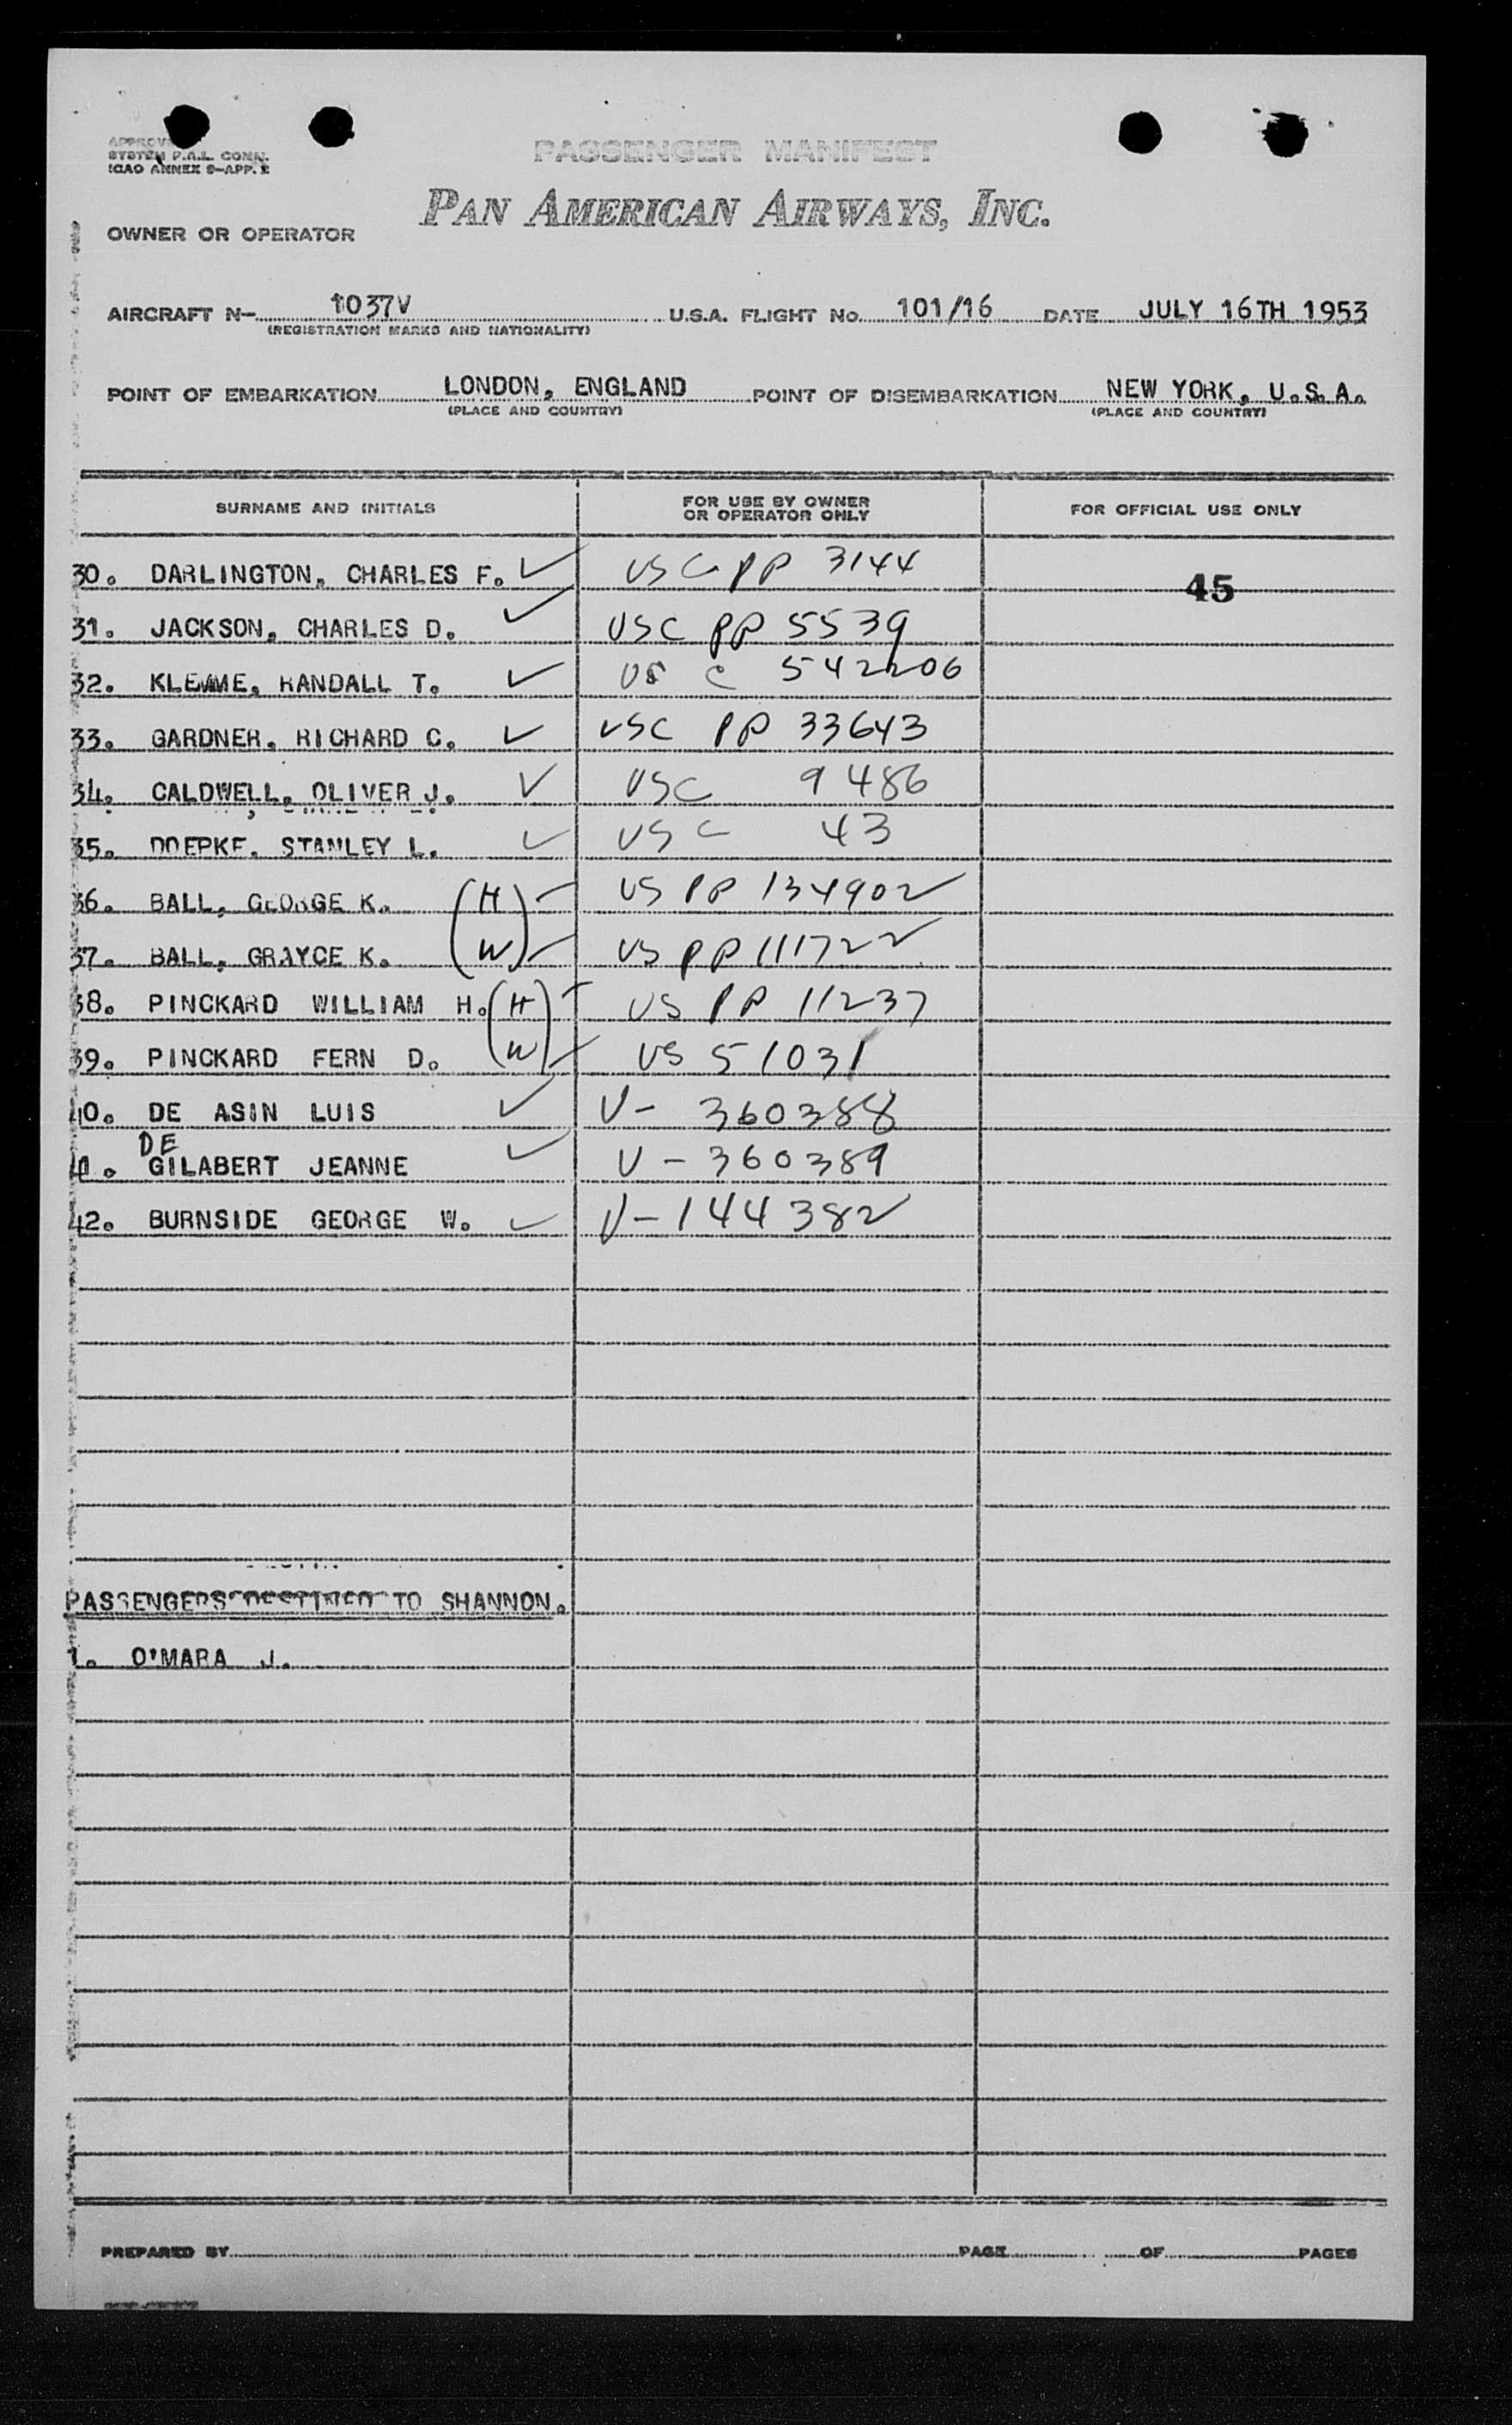 APPROVED
SYSTEM P.A.L. CONN.
ICAO ANNEX 9-APP. 2
PASSENGER MANIFEST
PAN AMERICAN AIRWAYS, INC.
OWNER OR OPERATOR
AIRCRAFT N- 1037V U.S.A. FLIGHT No. 101/16 DATE JULY 16TH 1953
(REGISTRATION MARKS AND NATIONALITY)
POINT OF EMBARKATION LONDON, ENGLAND POINT OF DISEMBARKATION NEW YORK, U.S.A.
(PLACE AND COUNTRY) (PLACE AND COUNTRY)
SURNAME AND INITIALS FOR USE BY OWNER OR OPERATOR ONLY FOR OFFICIAL USE ONLY
30. DARLINGTON, CHARLES F. ✓ USC PP 3144 45
31. JACKSON, CHARLES D. ✓ USC PP 5539
32. KLEMME, RANDALL T. ✓ US C 542206
33. GARDNER, RICHARD C. ✓ USC PP 33643
34. CALDWELL, OLIVER J. ✓ USC 9486
35. DOEPKE, STANLEY L. ✓ USC 43
36. BALL, GEORGE K. (H) US PP 134902
37. BALL, GRAYCE K. (W) US PP 111722
38. PINCKARD WILLIAM H. (H) US PP 11237
39. PINCKARD FERN D. (W) US 51031
40. DE ASIN LUIS ✓ V- 360388
DE
41. GILABERT JEANNE ✓ V-360389
42. BURNSIDE GEORGE W. ✓ V-144382
PASSENGERS DESTINED TO SHANNON.
1. O'MARA J.
PREPARED BY PAGE OF PAGES